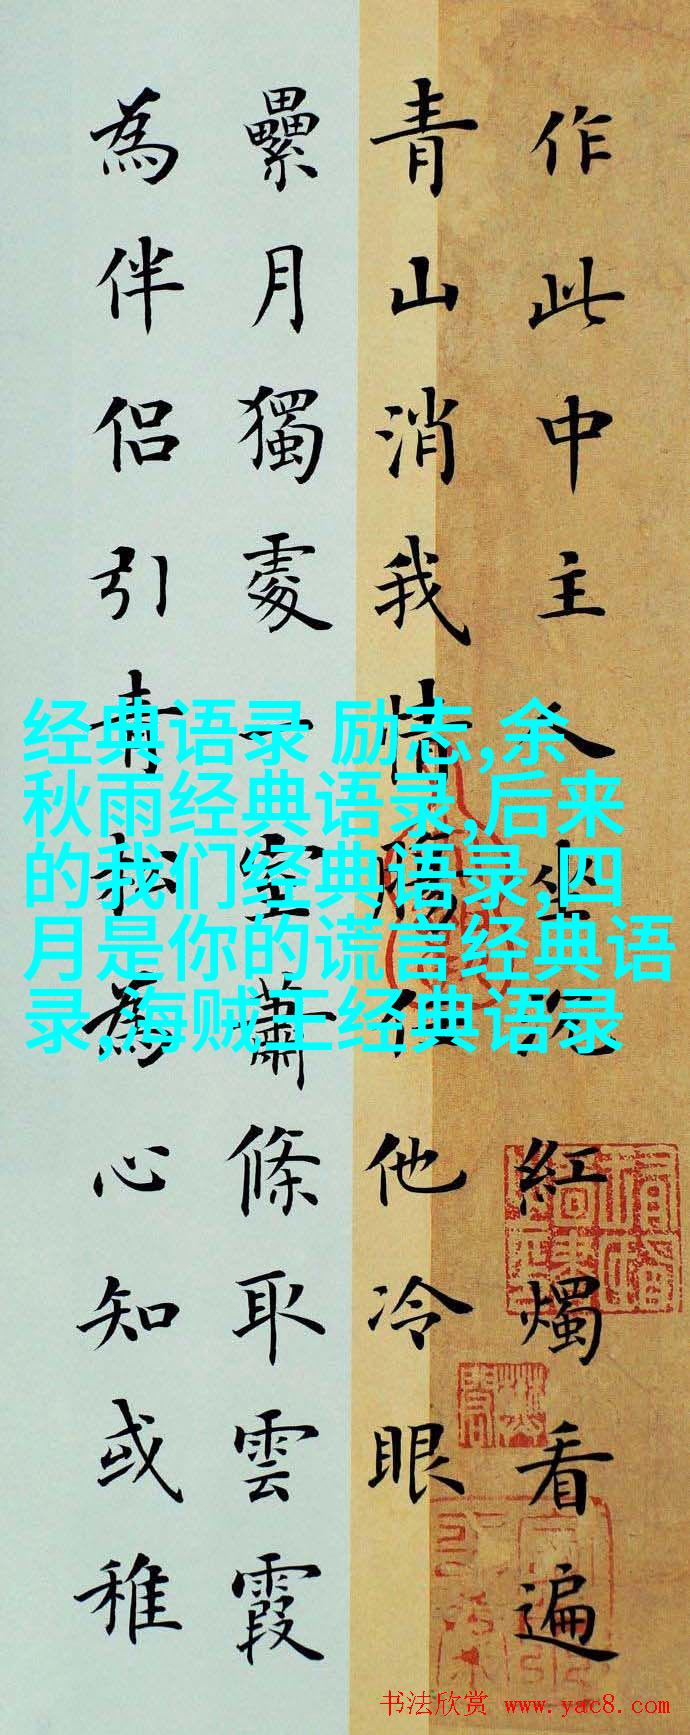 作此中主人坐紅燭看遍
青山消我情腸任他冷眼
纍月獨處一室蕭條取雲霞
為伴侶引青松為心知或稚
经典语录 励志,余
秋雨经典语录,后来
的我们经典语录,四
月是你的谎言经典语
录,海贼王经典语录
书法欣赏 www.yac8.com